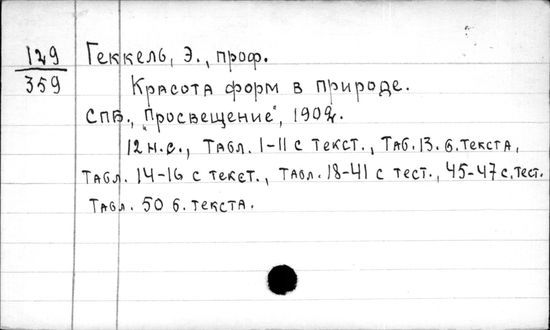 129
359
Геккель, Э., проф.
Красота форм в природе.
СПБ., „Просвещение", 190
12 н.с., Табл. 1-11 с текст., Таб. 13. б. текста,
Табл. 14-16 с текст., Табл. 18-41 с тест., 45-47 с. тест.
Табл. 50 б. текста.